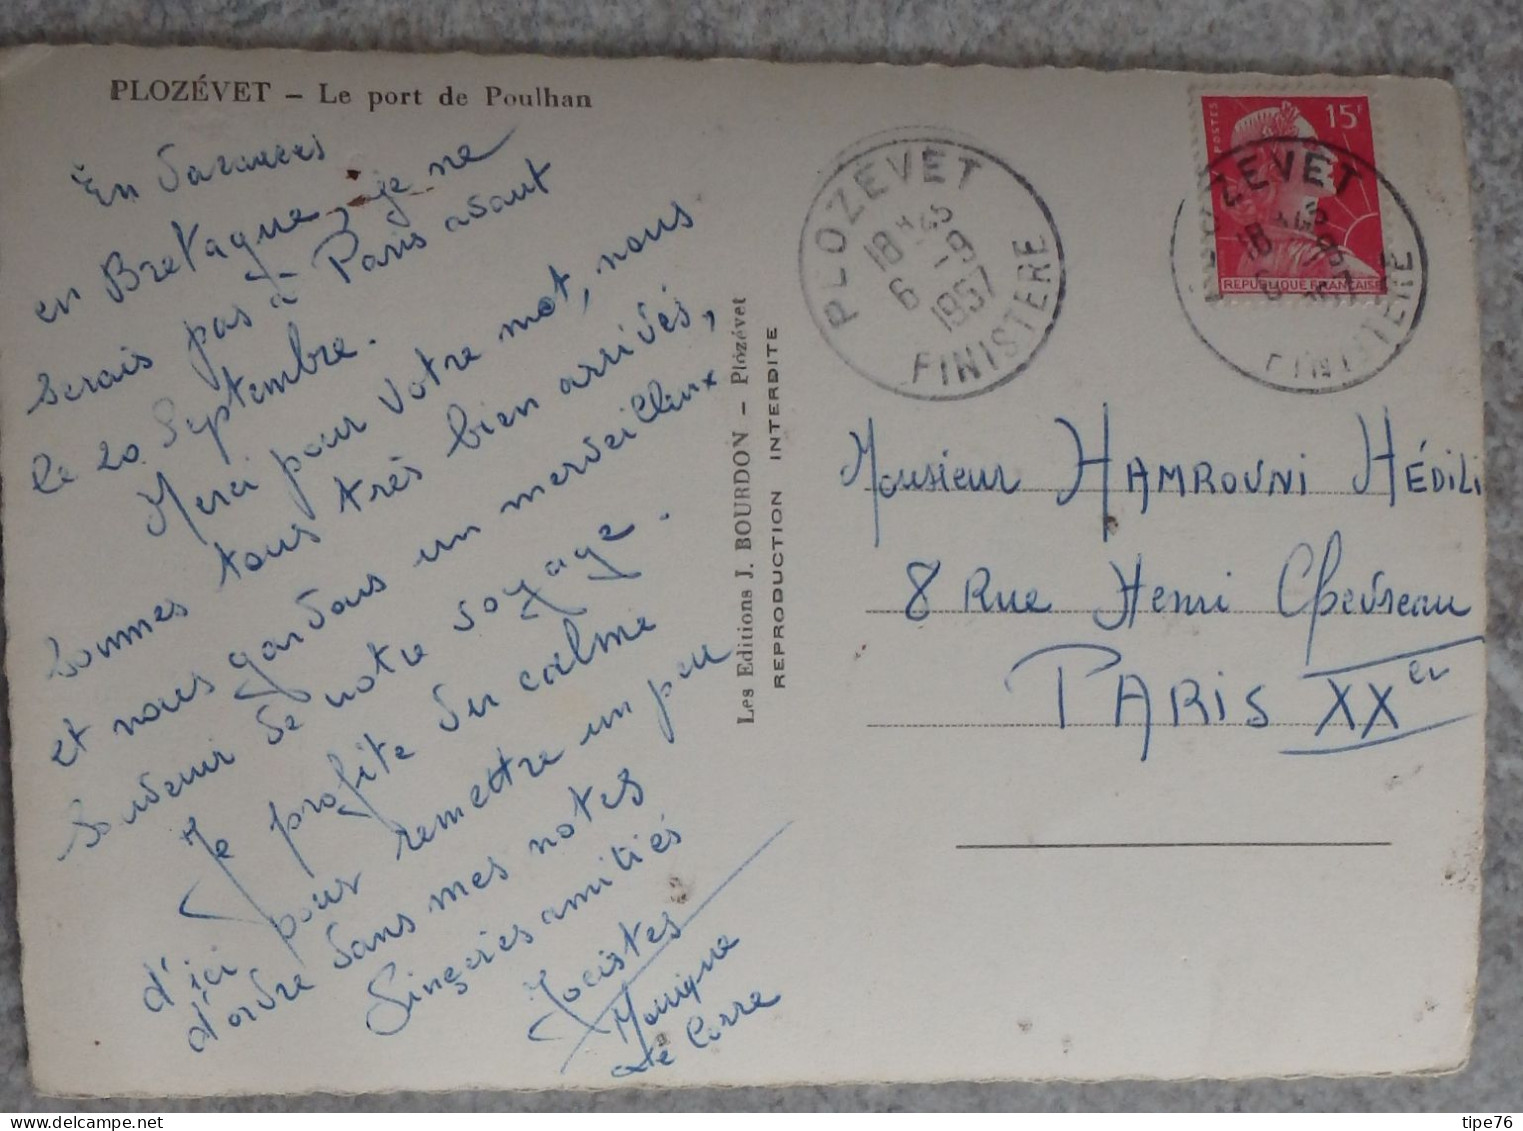 PLOZÉVET – Le port de Poulhan
En Vacances
en Bretagne, je ne
serais pas à Paris avant
le 20 Septembre.
Merci pour votre mot, nous
sommes tous très bien arrivés,
et nous gardons un merveilleux
souvenir de notre voyage.
Je profite du calme
d'ici pour remettre un peu
d'ordre dans mes notes
Sincères amitiés
Jocistes
Monique
Le Corre
Les Editions J. BOURDON – Plozévet
REPRODUCTION INTERDITE
PLOZEVET
18H45
6-9
1957
FINISTERE
POSTES
15F
REPUBLIQUE FRANÇAISE
PLOZEVET
18H45
6-9
1957
FINISTERE
Monsieur HAMROUNI HÉDILI
8 Rue Henri Chevreau
PARIS XXer
tipe76